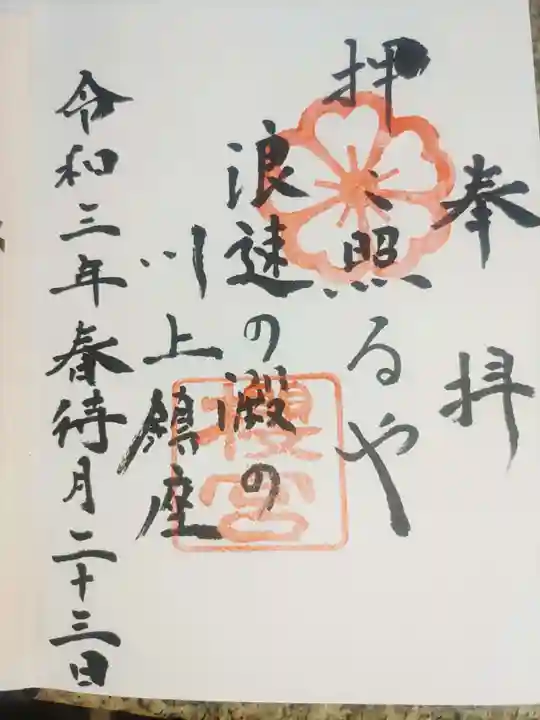 奉拝
押し照るや
浪速の澱の
川上鎮座
令和三年春待月二十三日
櫻宮